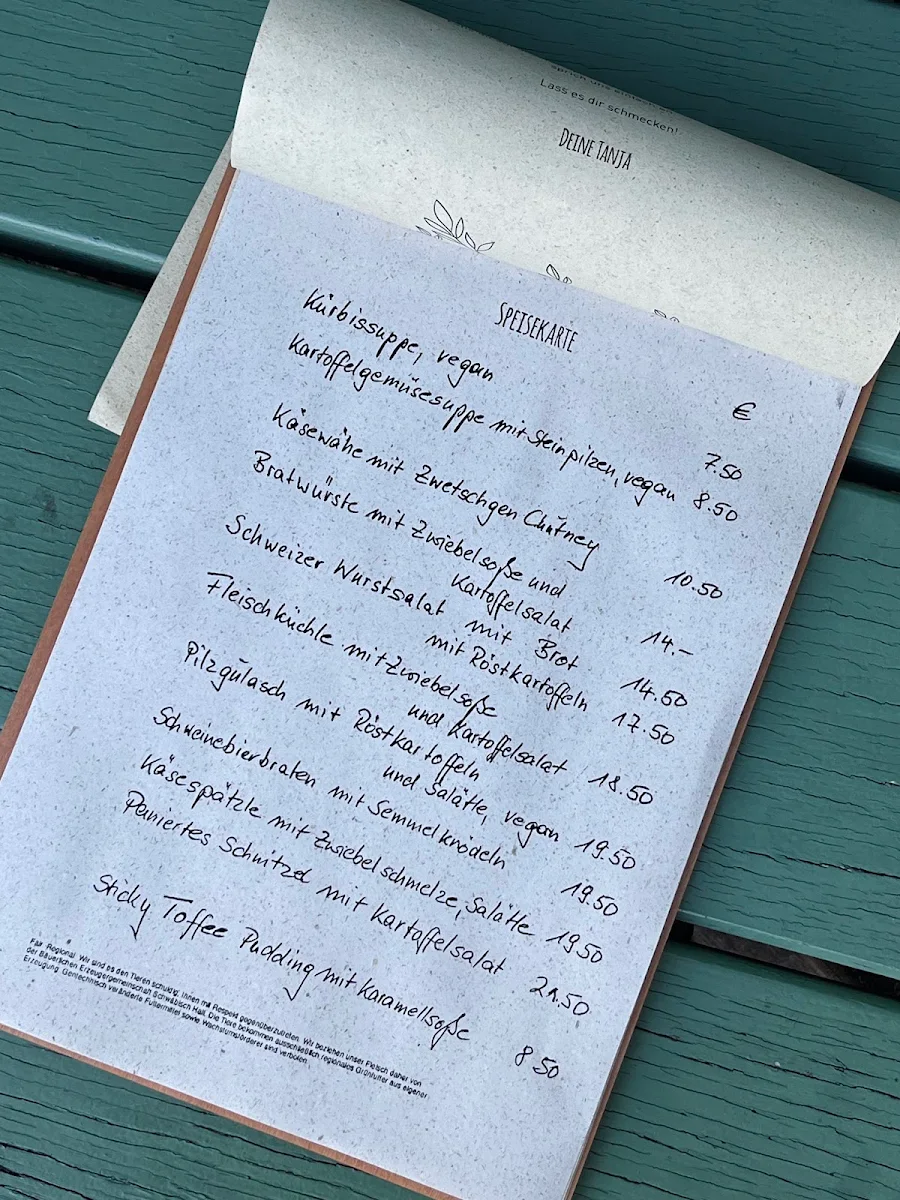 Lass es dir schmecken!
DEINE TANJA
SPEISEKARTE
€
Kürbissuppe, vegan 7.50
Kartoffelgemüsesuppe mit Steinpilzen, vegan 8.50
Käsewähe mit Zwetschgen Chutney 10.50
Bratwürste mit Zwiebelsoße und
Kartoffelsalat 14.-
Schweizer Wurstsalat mit Brot 14.50
mit Röstkartoffeln 17.50
Fleischküchle mit Zwiebelsoße
und Kartoffelsalat 18.50
Pilzgulasch mit Röstkartoffeln
und Salätle, vegan 19.50
Schweinebierbraten mit Semmelknödeln 19.50
Käsespätzle mit Zwiebelschmelze, Salätle 19.50
Paniertes Schnitzel mit Kartoffelsalat 21.50
Sticky Toffee Pudding mit Karamellsoße 8.50
Fair. Regional. Wir sind es den Tieren schuldig, Ihnen mit Respekt gegenüberzutreten. Wir beziehen unser Fleisch daher von
der Bäuerlichen Erzeugergemeinschaft Schwäbisch Hall. Die Tiere bekommen ausschließlich regionales Grünfutter aus eigener
Erzeugung. Gentechnisch veränderte Futtermittel sowie Wachstumsförderer sind verboten.